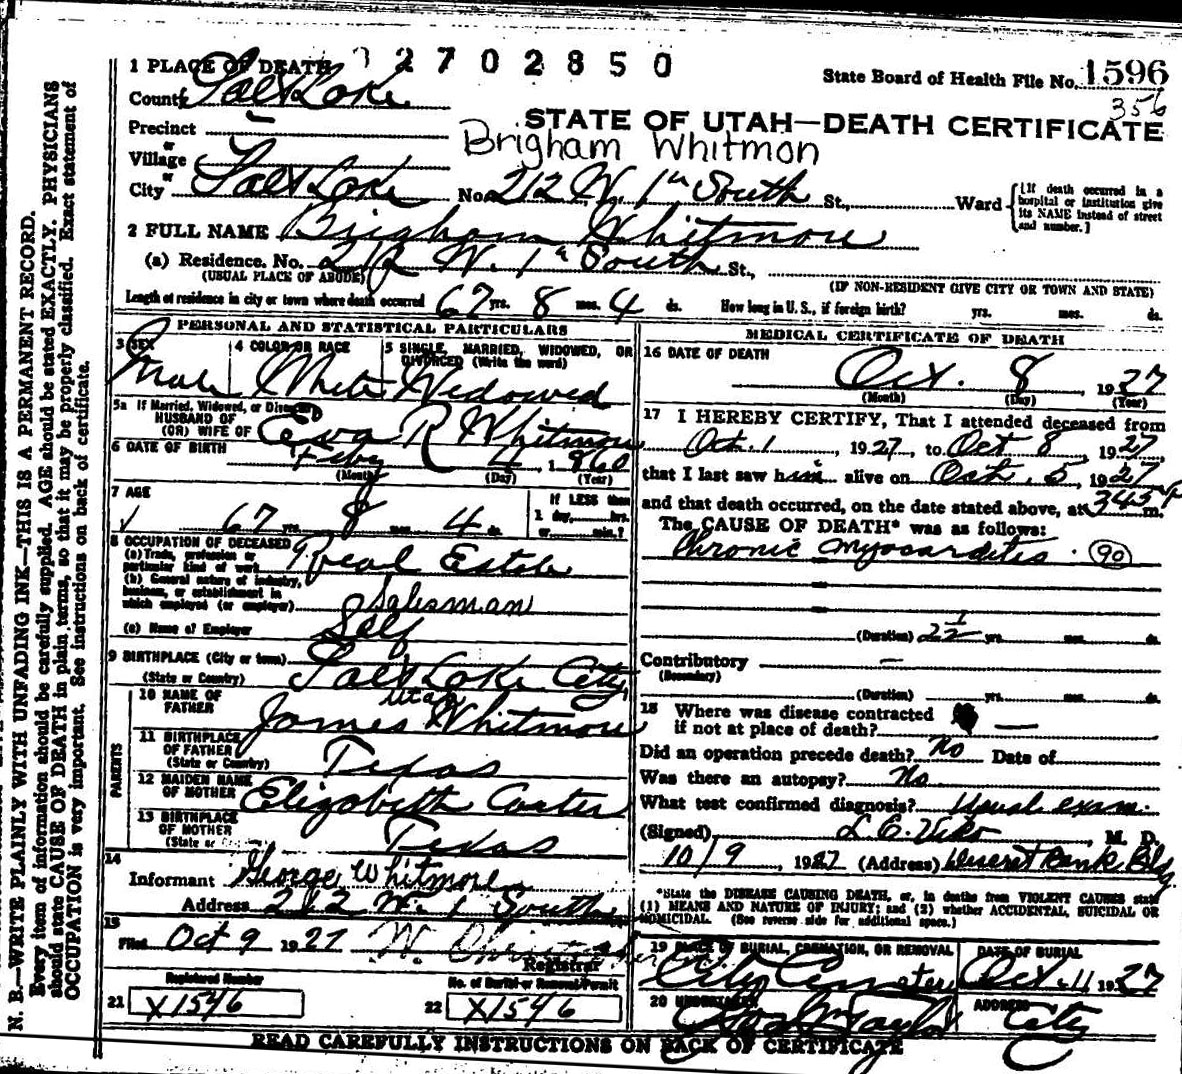 2702850
1 PLACE OF DEATH
State Board of Health File No. 1596
County Salt Lake
356
STATE OF UTAH—DEATH CERTIFICATE
Precinct
or
Village
Brigham Whitmon
or
City Salt Lake No. 212 W. 1st South St., Ward
[If death occurred in a hospital or institution give its NAME instead of street and number.]
2 FULL NAME Brigham Whitmore
(a) Residence. No. 212 W. 1st South St.,
(USUAL PLACE OF ABODE)
(IF NON-RESIDENT GIVE CITY OR TOWN AND STATE)
Length of residence in city or town where death occurred 67 yrs. 8 mos. 4 ds. How long in U. S., if foreign birth? yrs. mos. ds.
PERSONAL AND STATISTICAL PARTICULARS
3 SEX Male
4 COLOR OR RACE White
5 SINGLE, MARRIED, WIDOWED, OR DIVORCED (Write the word) Widowed
5a If Married, Widowed, or Divorced
HUSBAND OF
(OR) WIFE OF Eva R Whitmore
6 DATE OF BIRTH Feby 4, 1860
(Month) (Day) (Year)
7 AGE
67 yrs. 8 mos. 4 ds.
If LESS than
1 day, hrs.
or min.?
8 OCCUPATION OF DECEASED
(a) Trade, profession or particular kind of work Real Estate
(b) General nature of industry, business, or establishment in which employed (or employer) Salesman
(c) Name of Employer Self
9 BIRTHPLACE (City or town) Salt Lake City,
(State or Country) Utah
PARENTS
10 NAME OF FATHER James Whitmore
11 BIRTHPLACE OF FATHER (State or Country) Texas
12 MAIDEN NAME OF MOTHER Elizabeth Carter
13 BIRTHPLACE OF MOTHER Texas
(State or
14
Informant George Whitmore
Address 212 W. 1 South
15
Filed Oct 9 1927 W.
Registrar
Registered Number
No. of Burial or Removal Permit
21 X1546
22 X1546
MEDICAL CERTIFICATE OF DEATH
16 DATE OF DEATH
Oct. 8 1927
(Month) (Day) (Year)
17 I HEREBY CERTIFY, That I attended deceased from
Oct. 1 1927, to Oct 8, 1927,
that I last saw him alive on Oct. 5, 1927
and that death occurred, on the date stated above, at 345 P m.
The CAUSE OF DEATH* was as follows:
Chronic myocarditis. 90
(Duration) 2 1/2 yrs. mos. ds.
Contributory —
(Secondary)
(Duration) yrs. mos. ds.
18 Where was disease contracted
if not at place of death? —
Did an operation precede death? No Date of
Was there an autopsy? No
What test confirmed diagnosis? Usual exam.
(Signed) L. C. M. D.
10/9, 1927 (Address) Deseret Bank Bldg
*State the DISEASE CAUSING DEATH, or, in deaths from VIOLENT CAUSES state
(1) MEANS AND NATURE OF INJURY; and (2) whether ACCIDENTAL, SUICIDAL OR
HOMICIDAL. (See reverse side for additional space.)
19 PLACE OF BURIAL, CREMATION, OR REMOVAL City Cemetery
DATE OF BURIAL Oct. 11 1927
20 UNDERTAKER Taylor
ADDRESS City
READ CAREFULLY INSTRUCTIONS ON BACK OF CERTIFICATE
N. B.—WRITE PLAINLY WITH UNFADING INK—THIS IS A PERMANENT RECORD.
Every item of information should be carefully supplied. AGE should be stated EXACTLY. PHYSICIANS
should state CAUSE OF DEATH in plain terms, so that it may be properly classified. Exact statement of
OCCUPATION is very important. See instructions on back of certificate.